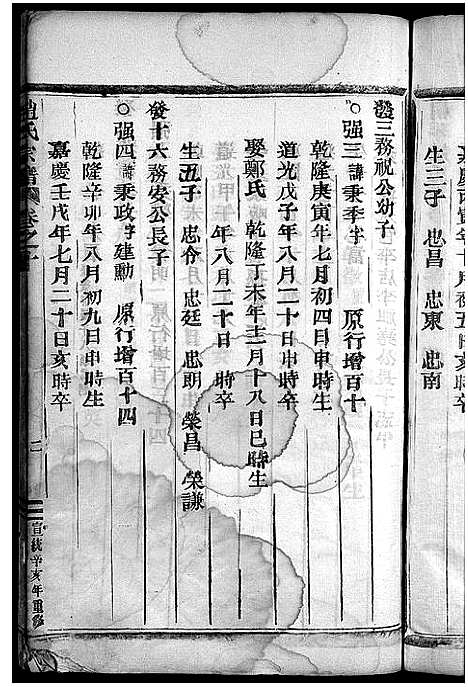 嘉慶丙寅年十月初五日亥時卒
生三子 忠昌 忠東 忠南
發三務祝公幼子
○强三諱秉季字 原行增百十
乾隆庚寅年七月初四日申時生
道光戊子年八月二十日申時卒
娶鄭氏 乾隆丁未年十二月十八日巳時生
年八月二十日 時卒
生五子 忠令 忠廷 忠明 榮昌 榮謙
發十六務安公長子
○强四諱秉政字建勳 原行增百十四
乾隆辛卯年八月初九日申時生
嘉慶壬戌年七月二十日亥時卒
趙氏宗譜 卷之 二 宣統辛亥年重修